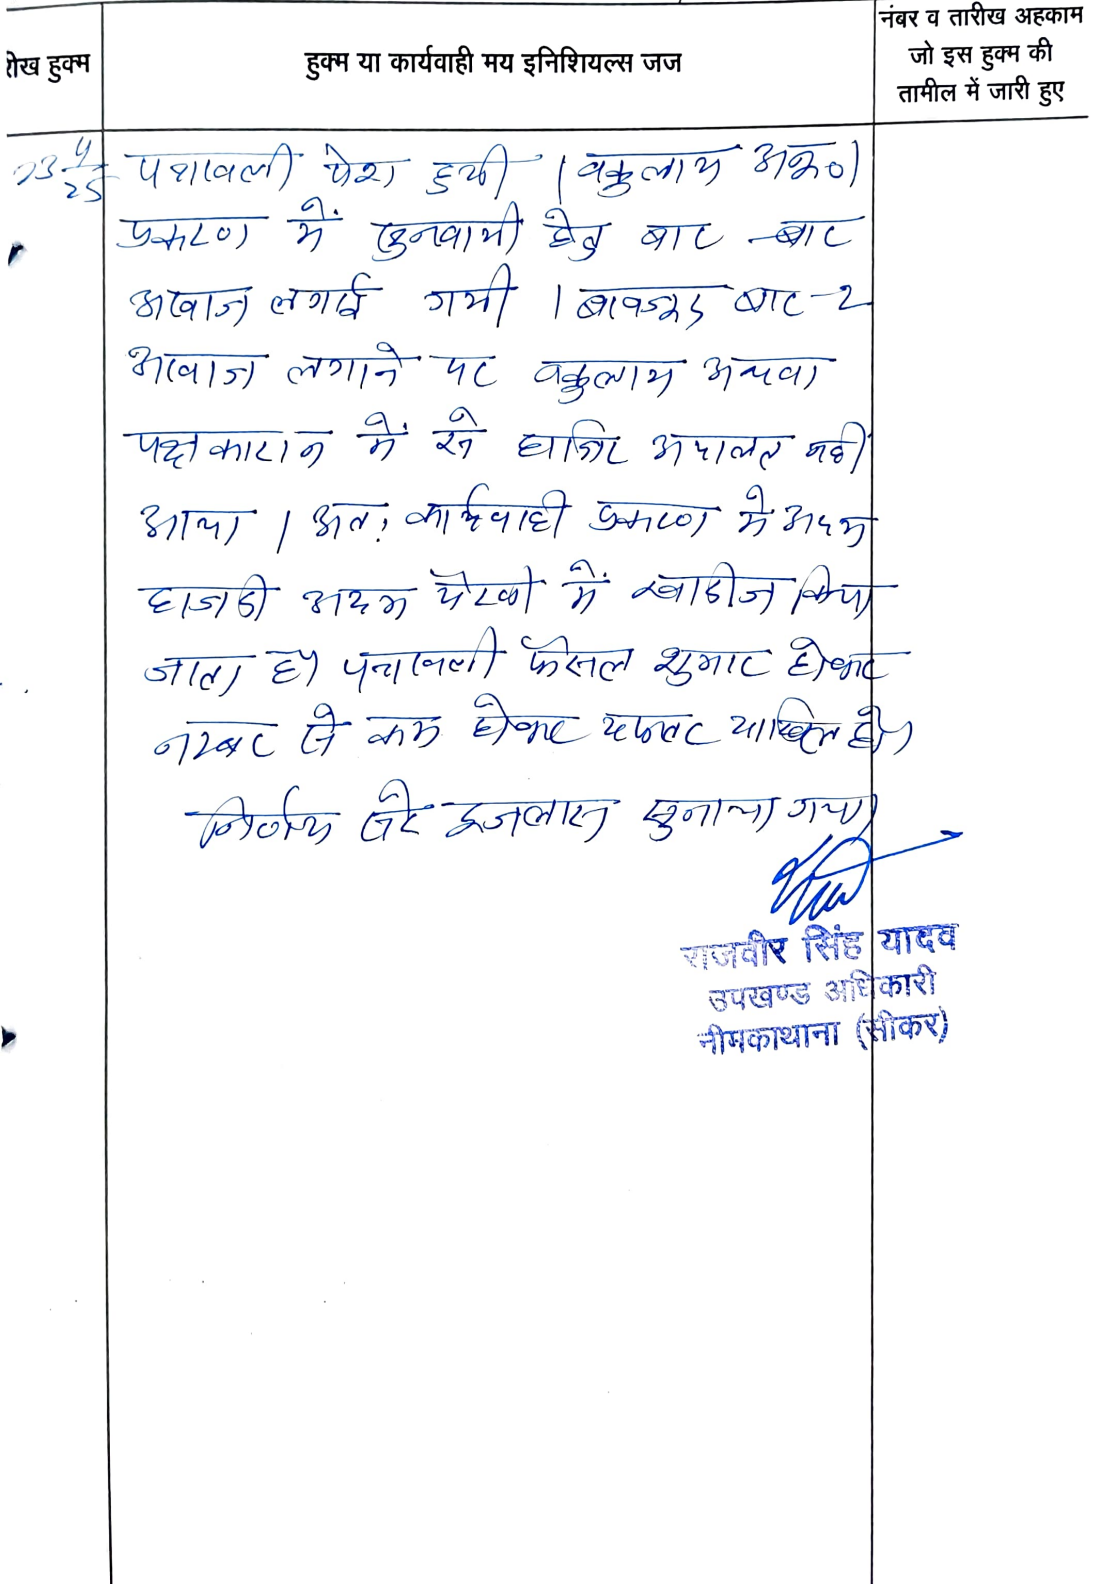 रीख हुक्म
हुक्म या कार्यवाही मय इनिशियल्स जज
नंबर व तारीख अहकाम
जो इस हुक्म की
तामील में जारी हुए
23 4/25
पत्रावली पेश हुयी । वकुलाय अनु० ।
प्रकरण में सुनवायी हेतु बार - बार
आवाज लगाई गयी । बावजूद बार-2
आवाज लगाने पर वकुलाय अथवा
पक्षकारान में से हाजिर अदालत नहीं
आया । अतः कार्यवाही प्रकरण में अदम
हाजरी अदम पैरवी में खारीज किया
जाता है। पत्रावली फैसल शुमार होकर
नम्बर से कम होकर दफ्तर दाखिल हो।
निर्णय सरे इजलास सुनाया गया।
राजवीर सिंह यादव
उपखण्ड अधिकारी
नीमकाथाना (सीकर)